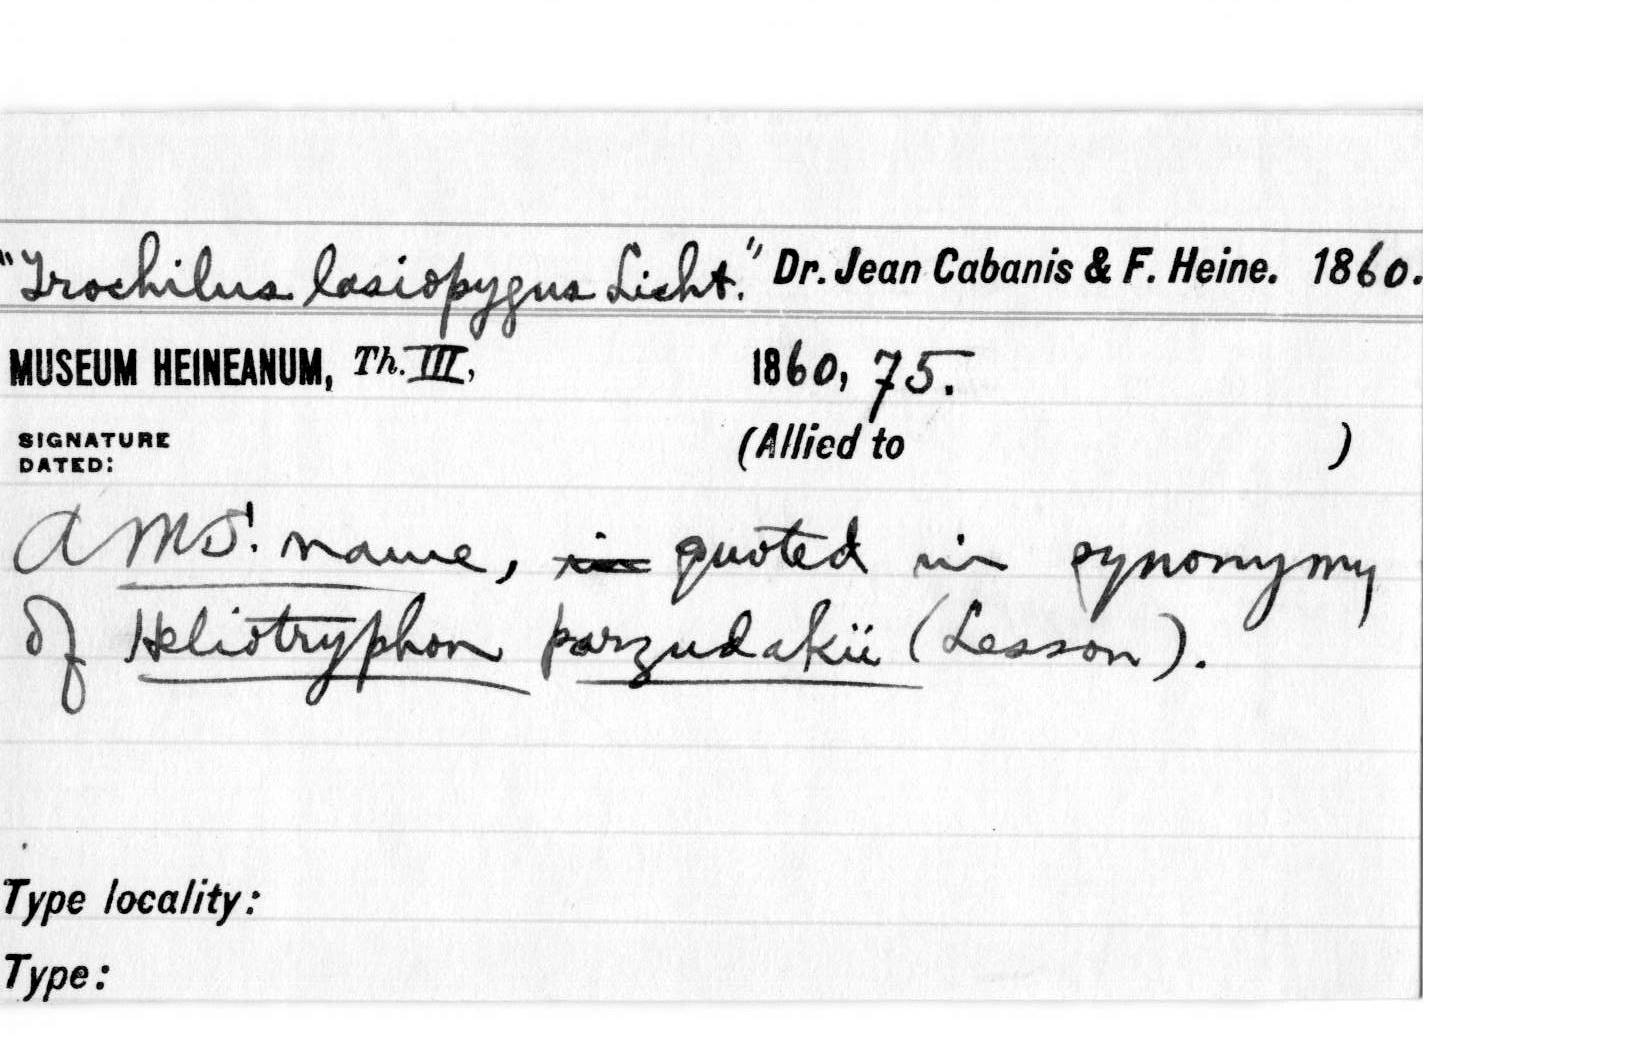 "Trochilus lasiopygus Licht." Dr. Jean Cabanis & F. Heine. 1860.
MUSEUM HEINEANUM, Th. III, 1860, 75.
SIGNATURE
DATED: (Allied to )
A MS. name, in quoted in synonymy
of Heliotryphon parzudakii (Lesson).
Type locality:
Type: